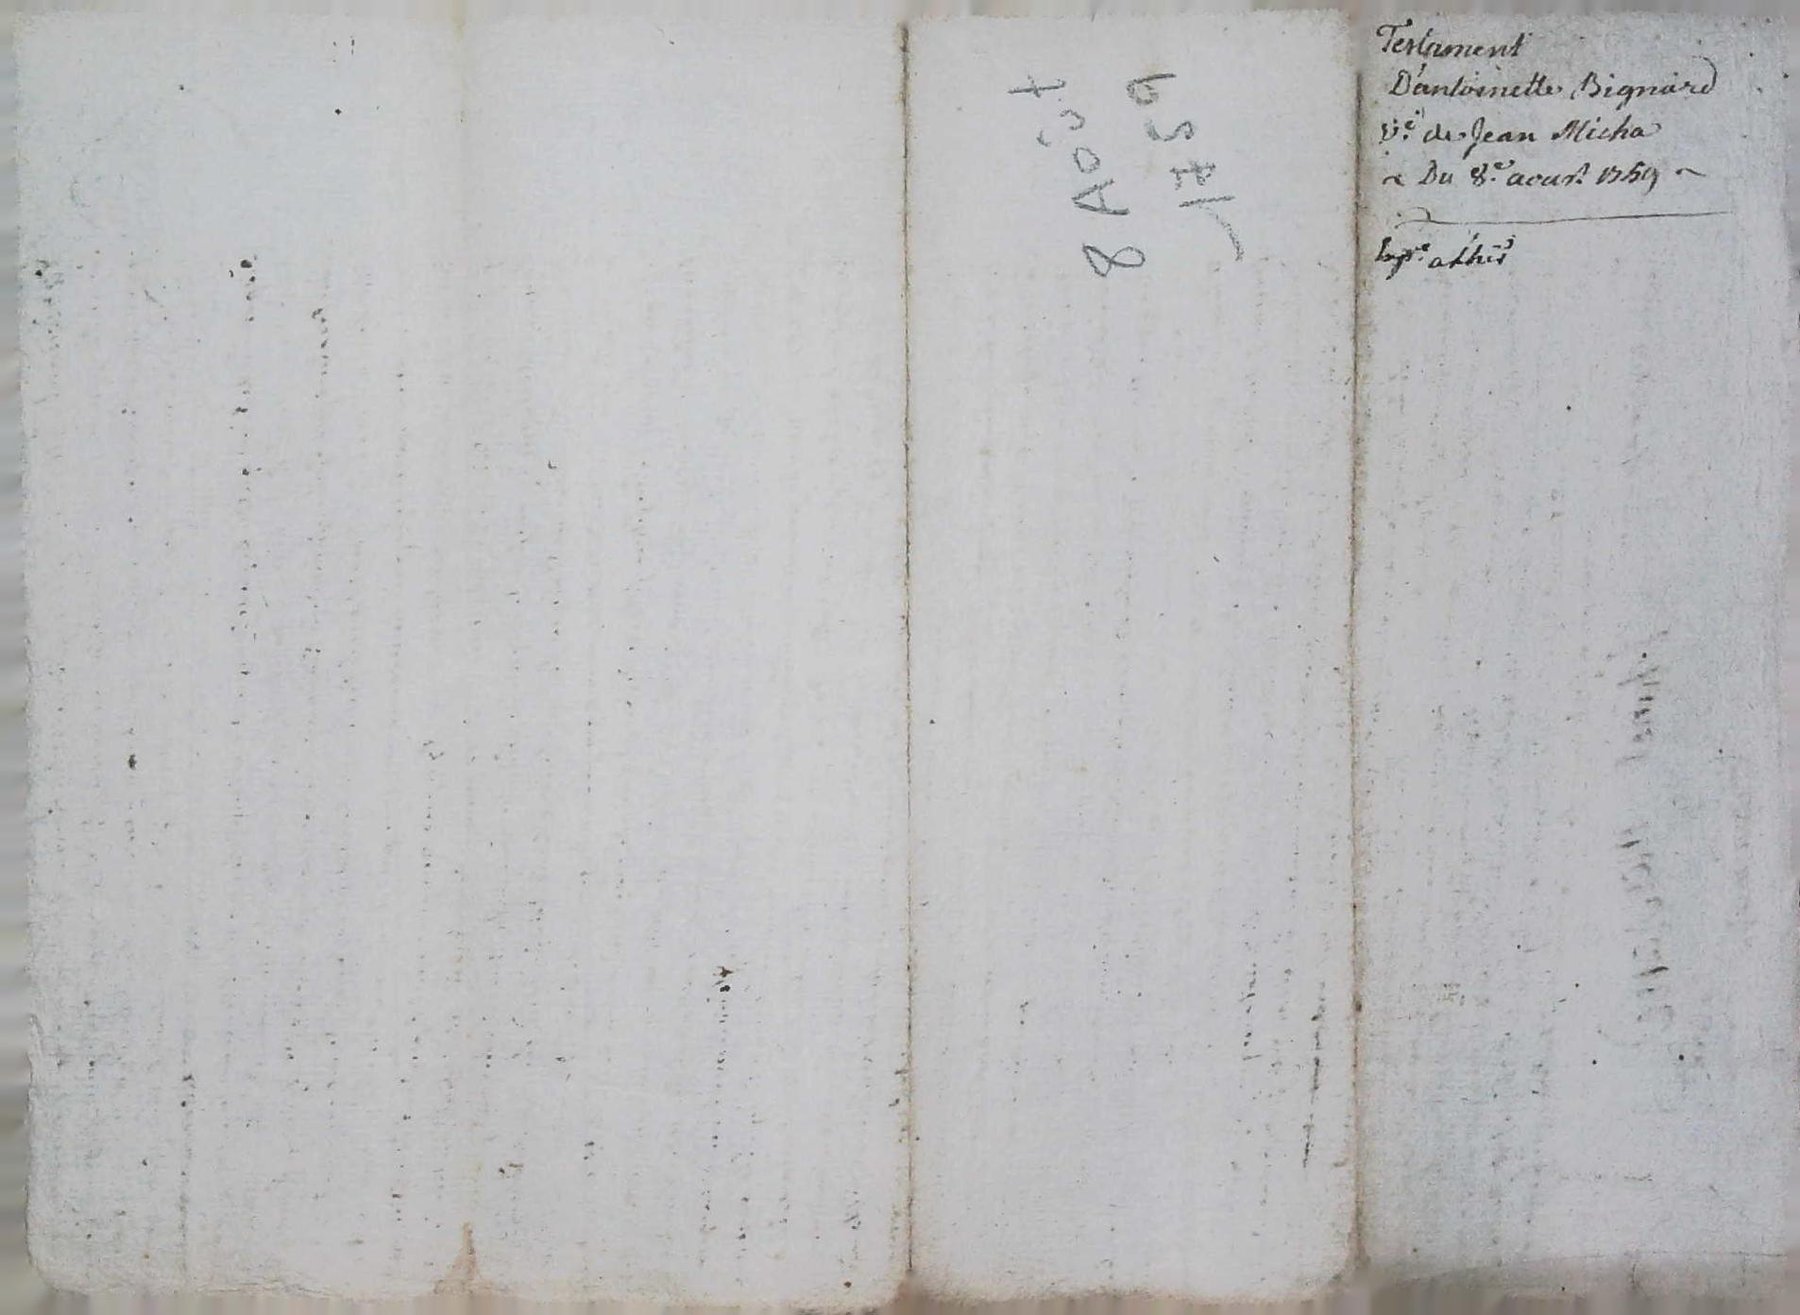 8 AOÛT
1759
Testament
D'antoinette Bignard
V.e de Jean Micha
Du 8.e aoust 1759